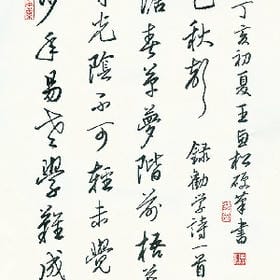 少年易老學難成
寸光陰不可輕未覺
塘春草夢階前梧
已秋聲 錄勸学詩一首
丁亥初夏王松硬筆書